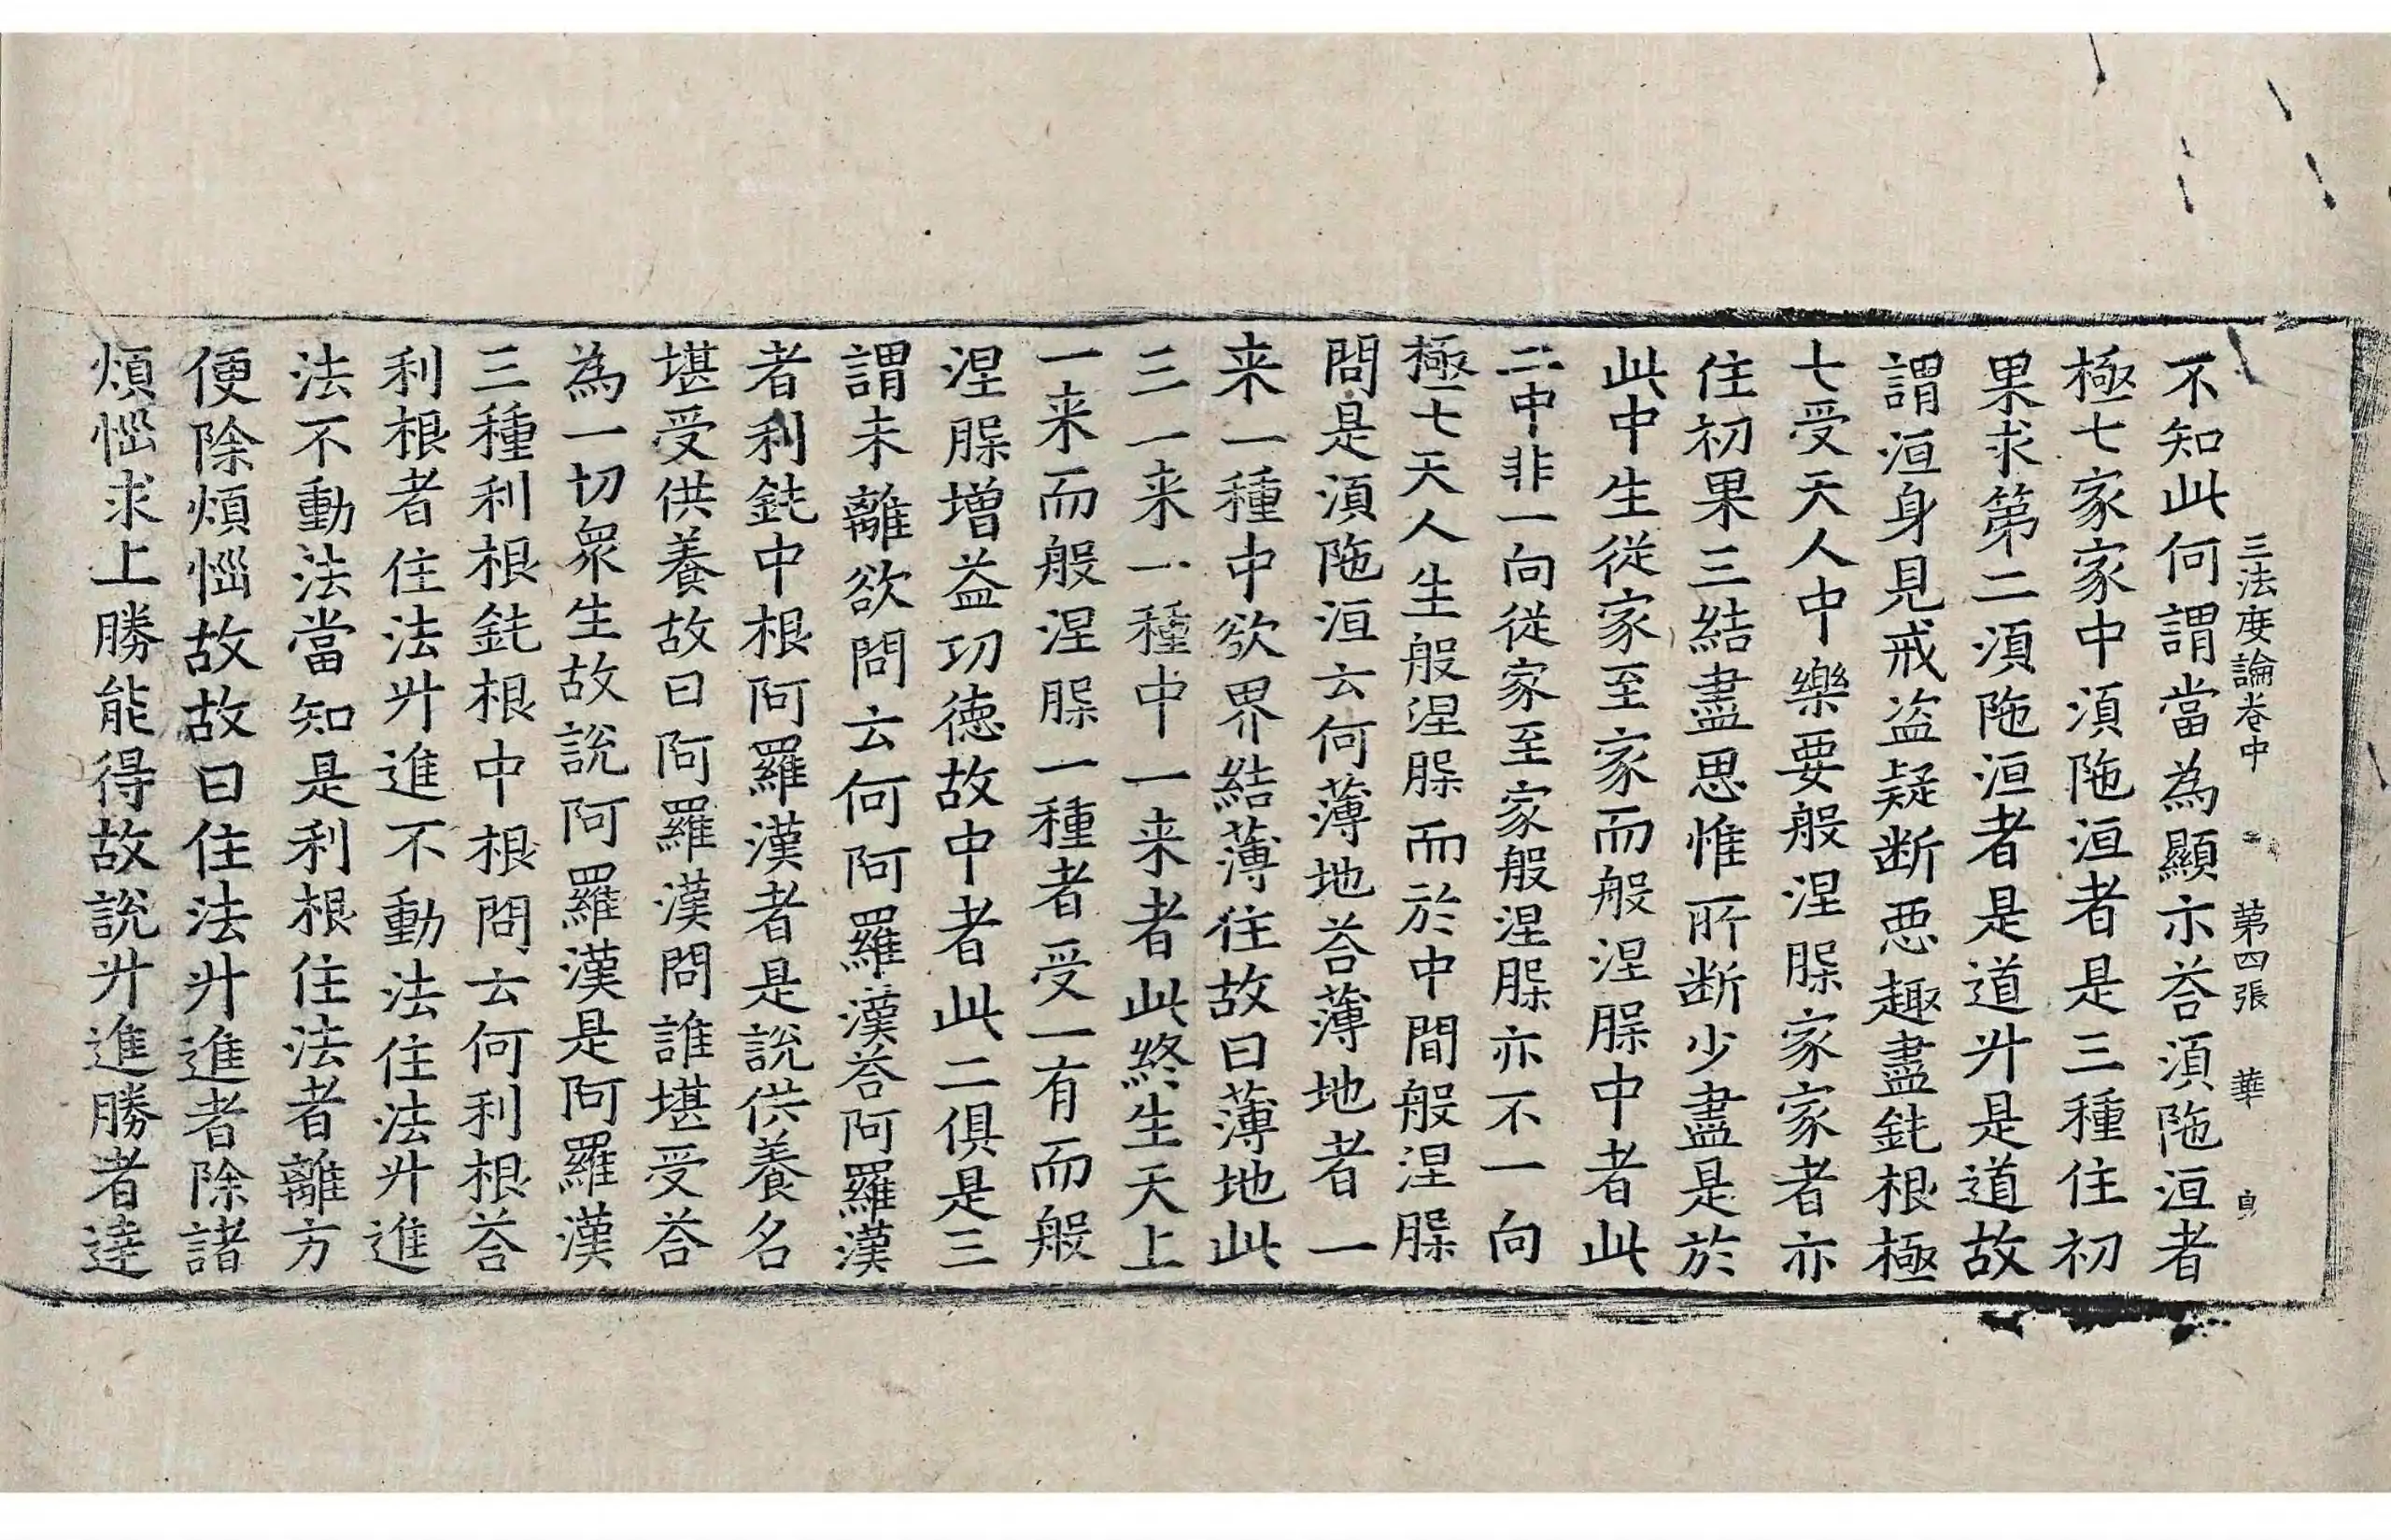 三法度論卷中　第四張　華
不知此何謂當為顯示荅湏陁洹者
極七家家中湏陁洹者是三種住初
果求第二湏陁洹者是道廾是道故
謂洹身見戒盗疑断惡趣盡鈍根極
七受天人中樂要般涅脲家家者亦
住初果三結盡思惟所断少盡是於
此中生從家至家而般涅脲中者此
二中非一向從家至家般涅脲亦不一向
極七天人生般涅脲而於中間般涅脲
問是湏陁洹云何薄地荅薄地者一
来一種中欲界結薄住故曰薄地此
三一来一種中一来者此終生天上
一来而般涅脲一種者受一有而般
涅脲增益功德故中者此二俱是三
謂未離欲問云何阿羅漢荅阿羅漢
者利鈍中根阿羅漢者是説供養名
堪受供養故曰阿羅漢問誰堪受荅
為一切衆生故説阿羅漢是阿羅漢
三種利根鈍根中根問云何利根荅
利根者住法廾進不動法住法廾進
法不動法當知是利根住法者離方
便除煩惱故故曰住法廾進者除諸
煩惱求上勝能得故説廾進勝者逹